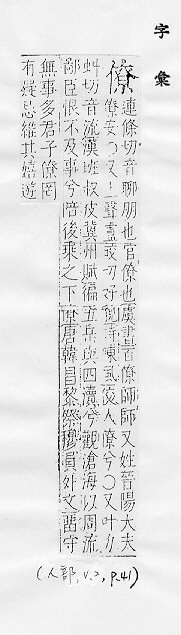 字彙
僚
連條切音聊朋也官僚也虞書百僚師師又姓晉陽大夫
僚安〇又上聲盧皎切好貌詩陳風佼人僚兮〇又叶力
虬切音流漢班叔皮冀州賦徧五岳與四瀆兮觀滄海以周流
鄙臣恨不及事兮陪後乘之下僚唐韓昌黎祭穆員外文舊守
無事多君子僚罔
有疑忌維其嬉遊
(人部, v.2, p.41)